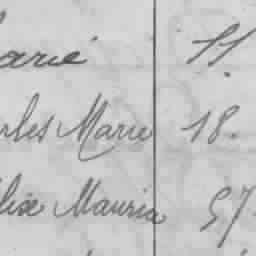 arie 11.
rles Marie 18.
lix Maurice 57.